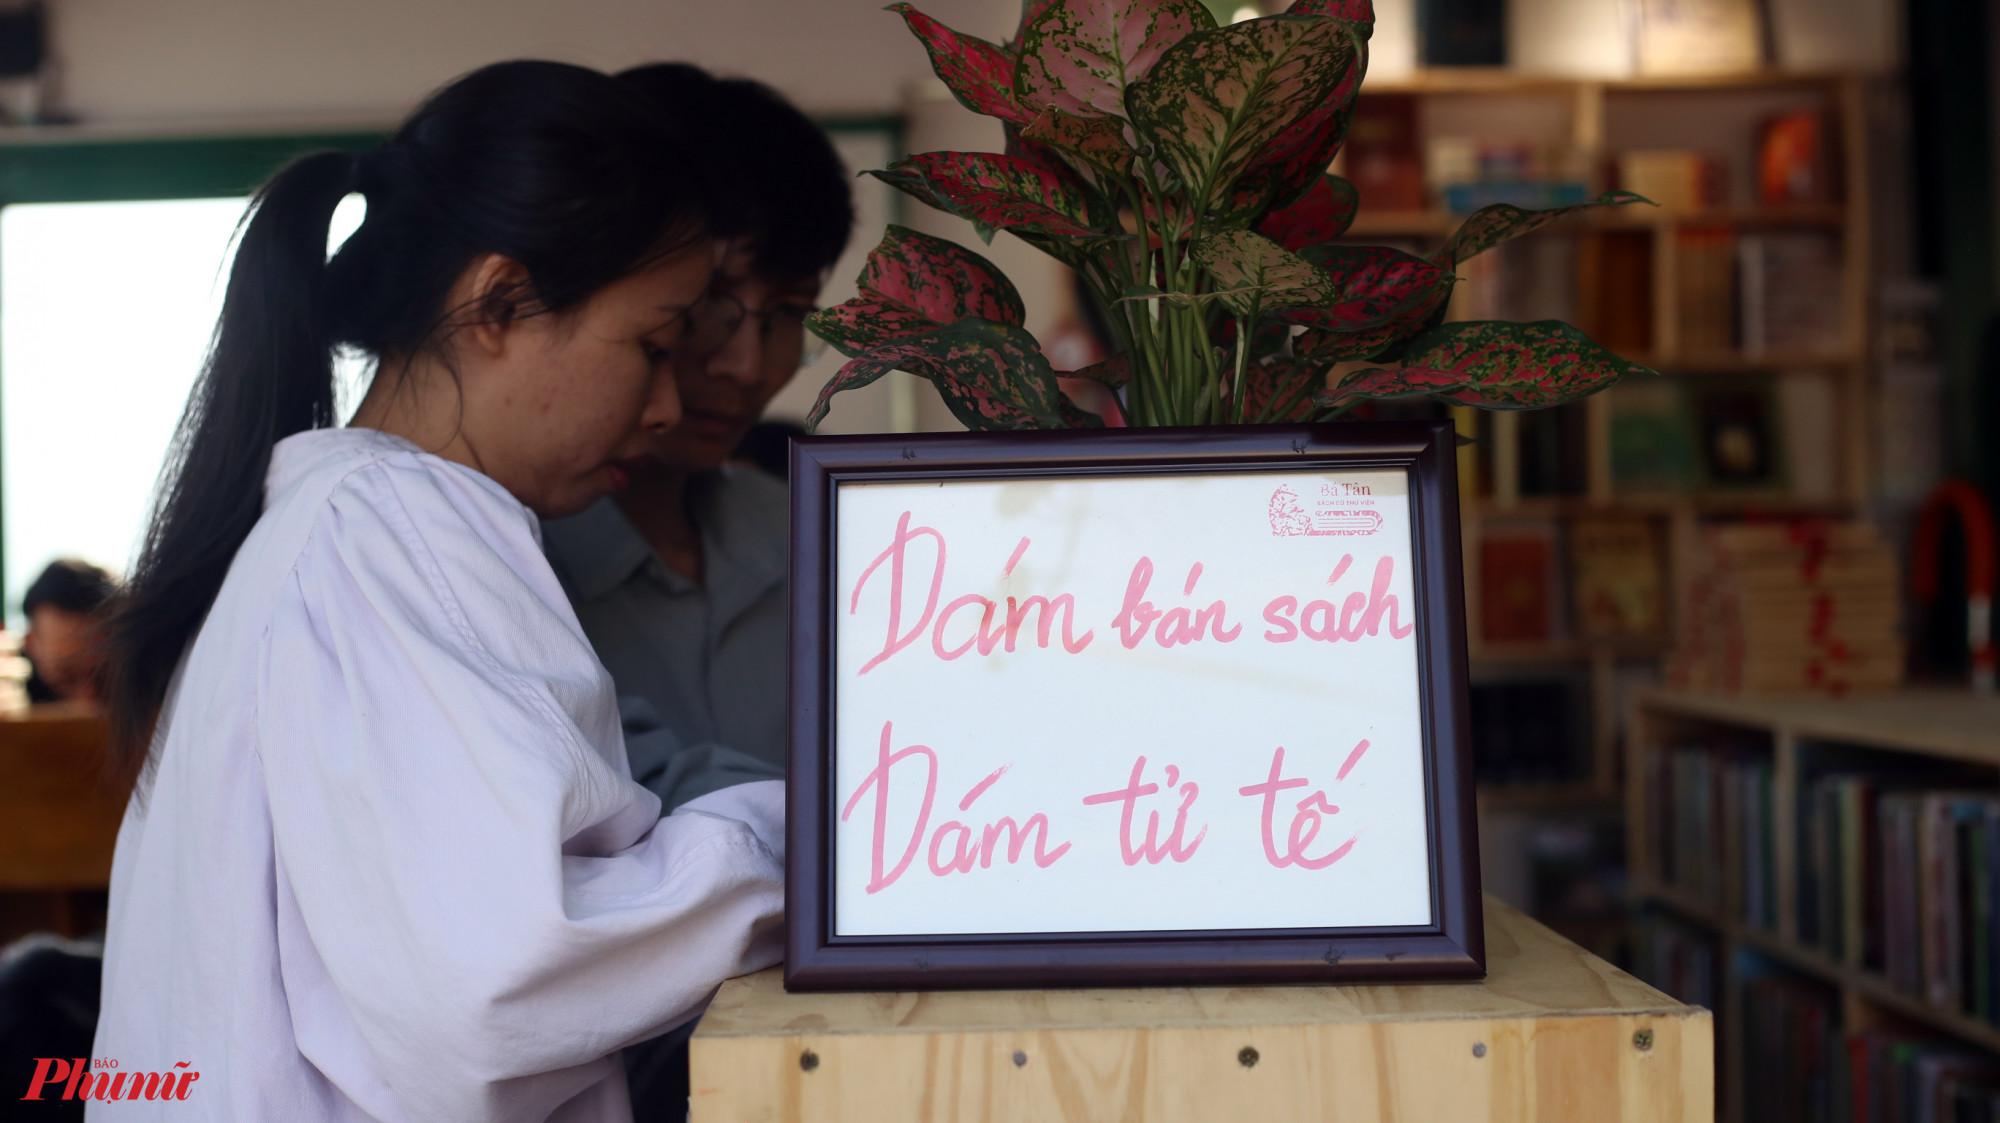 Bá Tân
SÁCH CŨ THƯ VIỆN
Dám bán sách
Dám tử tế
BÁO
Phụ nữ